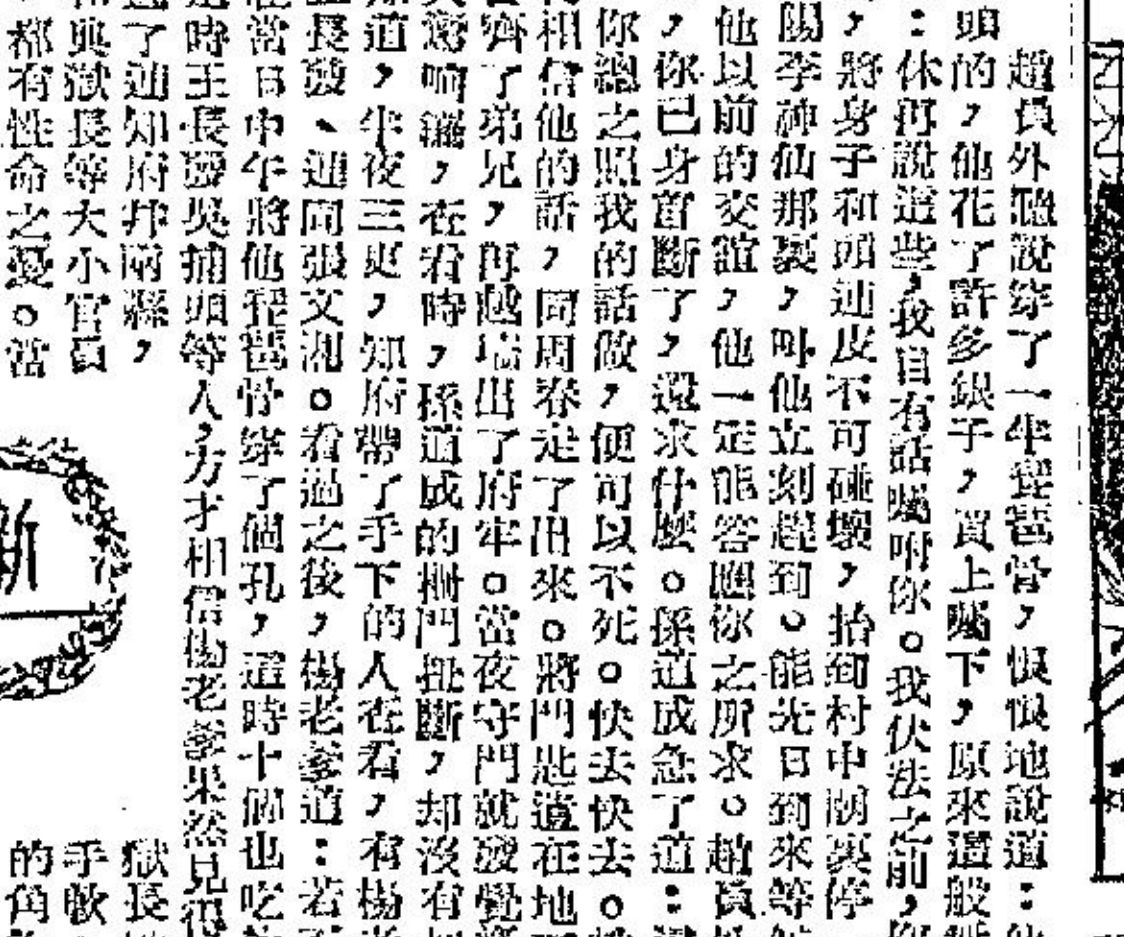 趙員外聽說穿了一半琵琶骨，恨恨地說道：
頭的，他花了許多銀子，買上囑下，原來這般
：休再說這些，我自有話囑咐你。我伏法之前，
，將身子和頭連皮不可碰壞，抬到村中廟裏停
陽李神仙那裏，叫他立刻趕到。能先日到來等
他以前的交誼，他一定能答應你之所求。趙員
，你已身首斷了，還求什麼。孫道成急了道：
你總之照我的話做，便可以不死。快去快去。
相信他的話，同周春走了出來。將門匙遺在地
齊了弟兄，再越墻出了府牢。當夜守門就發覺
驚响鑼，在看時，孫道成的柵門扭斷，却沒有
道，半夜三更，知府帶了手下的人在看，有楊
長發、通同張文湘。看過之後，楊老爹道：若
當日中午將他琵琶骨穿了個孔，這時十個也吃
時王長發吳捕頭等人，方才相信楊老爹果然見
了通知府幷兩縣，
獄長
典獄長等大小官員
手
都有性命之憂。當
的角
新